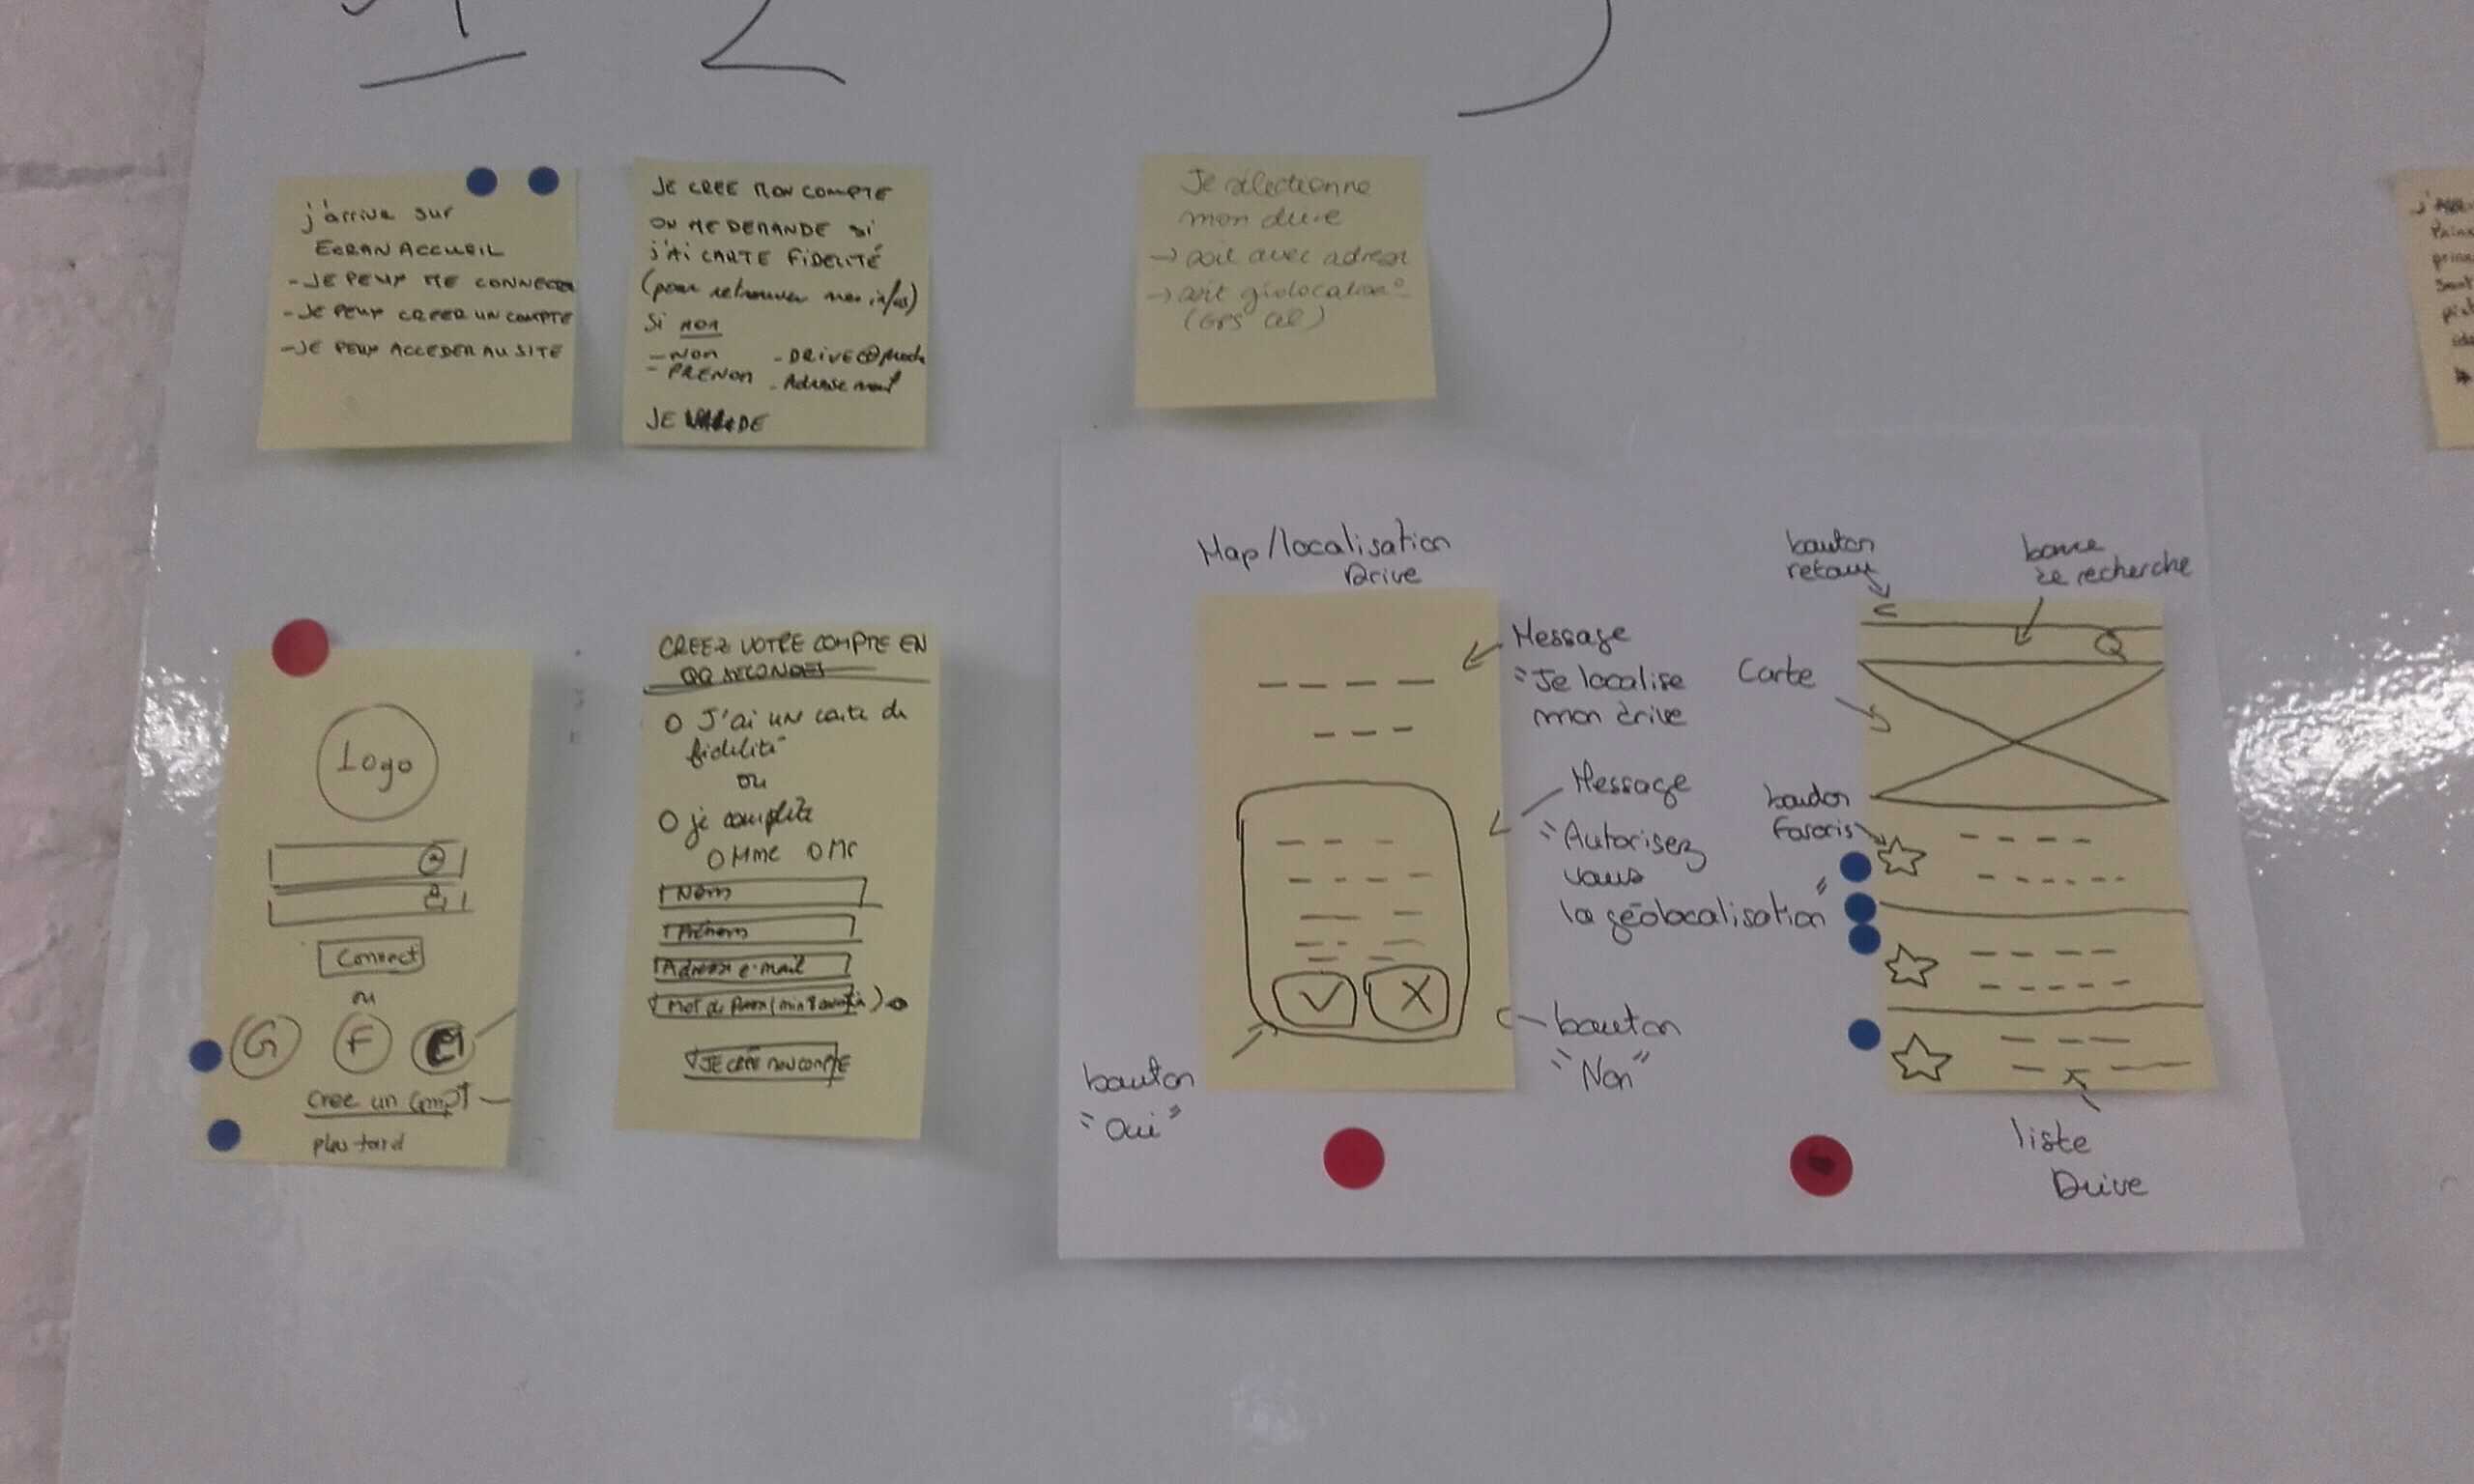 1
2
3
j'arrive sur
ECRAN ACCUEIL
- JE PEUX ME CONNECTER
- JE PEUX CREER UN COMPTE
- JE PEUX ACCEDER AU SITE
JE CREE MON COMPTE
ON ME DEMANDE si
j'Ai CARTE FiDELITÉ
(pour retrouver mes infos)
Si non
- NOM - DRIVE
- PRENOM - Adresse mail
JE
Je sélectionne
mon drive
→ soit avec adresse
→ soit géolocation
(GPS
Logo
Connect
ou
G F
Cree un Compt
plus tard
CREEZ VOTRE COMPTE EN
QQ SECONDES
O J'ai un carte de
fidélité
ou
O je complète
O Mme O Mr
Nom
Prénom
Adresse e-mail
Mot de passe (min 8
JE CRÉE MON COMPTE
Map/localisation
Drive
Message
"Je localise
mon drive
Message
"Autorisez
vous
la géolocalisation"
bouton
"Oui"
bouton
"Non"
bouton
retour
barre
de recherche
<
Carte
bouton
favoris
liste
Drive